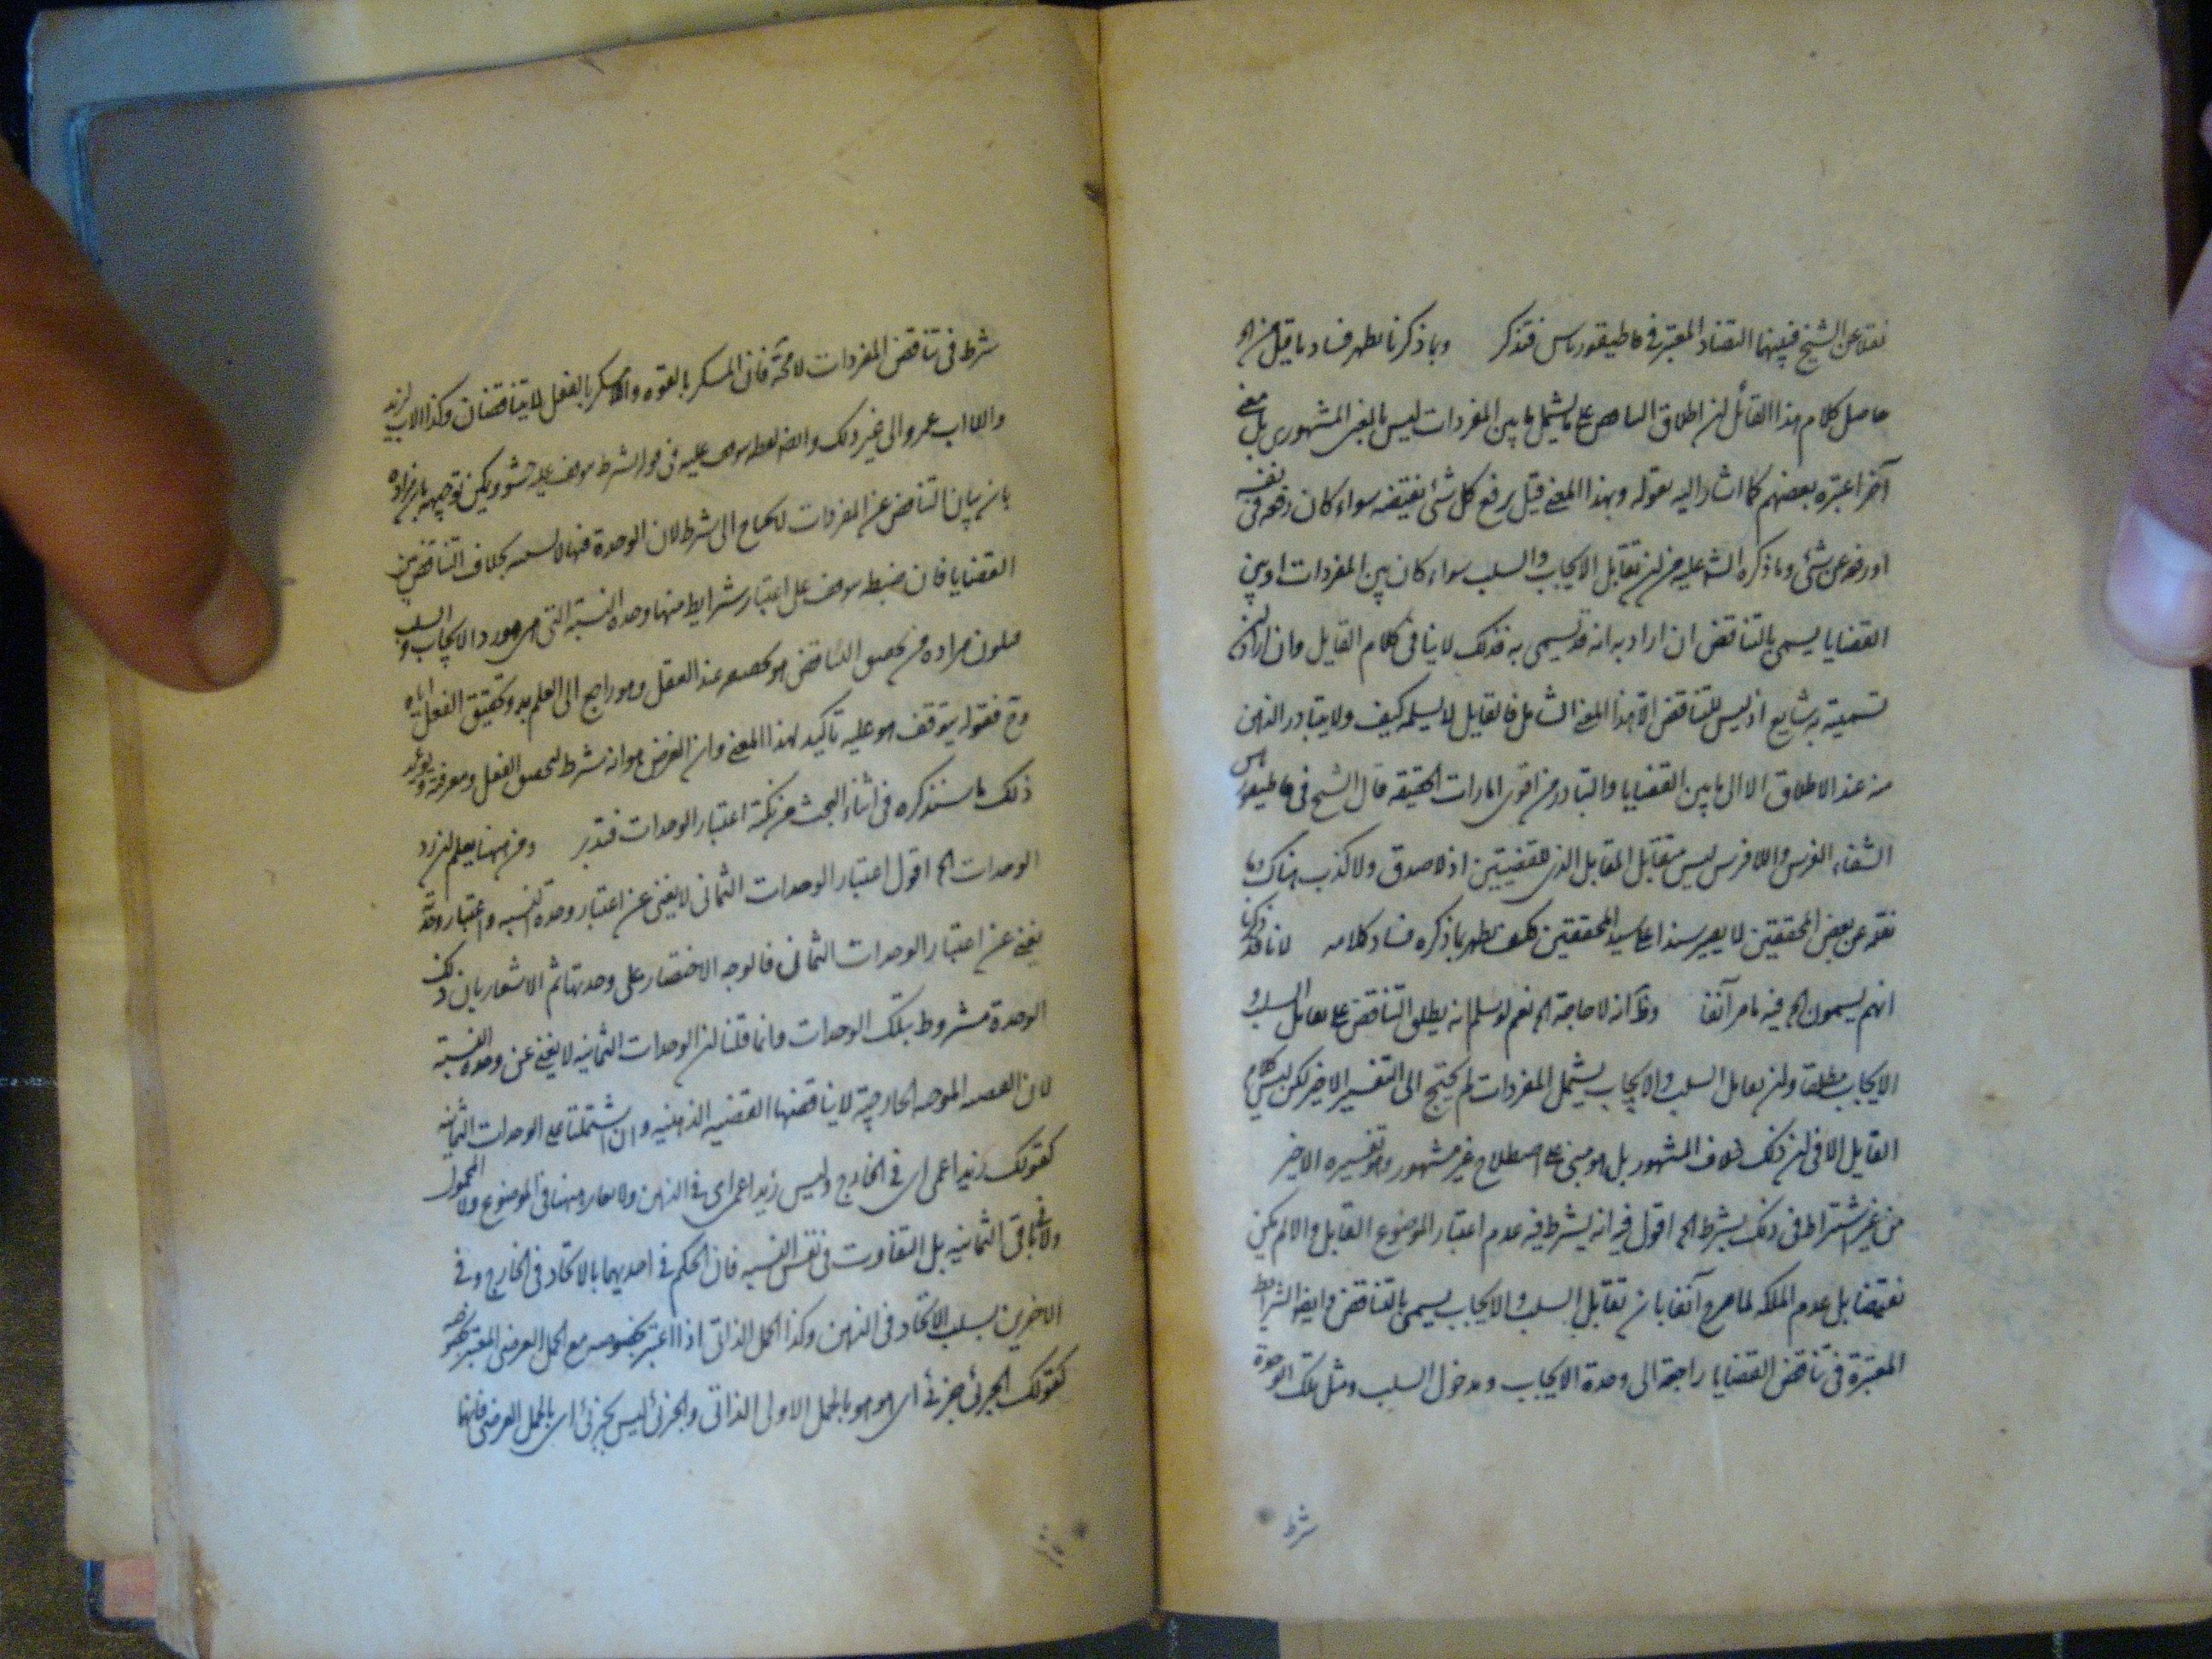 نقلا عن الشيخ فيهما التضاد المعتبر في قاطيغورياس فتذكر وبما ذكرنا يظهر فساد ما قيل من ان
حاصل كلام هذا القائل ان اطلاق التناقض على ما يشمل ما بين المفردات ليس بالمعنى المشهوري بل بمعنى
آخر اعتبره بعضهم كما اشار اليه بقوله وبهذا المعنى قيل رفع كل شئ نقيضه سواء كان رفعه في نفسه
او رفعه عن شئ وما ذكره الش عليه من ان تقابل الايجاب والسلب سواء كان بين المفردات او بين
القضايا يسمى بالتناقض ان اراد به انه قد يسمى به فذلك لا ينافي كلام القايل وان اراد ان
تسميته به شايع اذ ليس للتناقض الا هذا المعنى الشامل فالقايل لا يسلمه كيف ولا يتبادر الذهن
منه عند الاطلاق الا الى ما بين القضايا والتبادر من اقوى امارات الحقيقه قال الشيخ في قاطيغورياس
الشفاء الفرس واللافرس ليس متقابل التقابل الذي للقضيتين اذ لا صدق ولا كذب هناك وما
نقله عن بعض المحققين لا يصير سندا على سيد المحققين فكيف يظهر بما ذكره فساد كلامه لانا قد ذكرنا
انهم يسمون الخ فيه ما مر آنفا وظ انه لا حاجة الخ نعم لو سلم انه يطلق التناقض على تقابل السلب و
الايجاب مطلقا وان تقابل السلب والايجاب يشمل المفردات لم يحتج الى التفسير الاخير لكن ليس كلام
القايل الا في ان ذلك خلاف المشهور بل هو مبني على اصطلاح غير مشهور وهو تفسيره الاخير
من غير اشتراط في ذلك بشرط الخ اقول فيه انه يشترط فيه عدم اعتبار الموضوع القابل والا لم يكن
نقيضا بل عدم الملكه لما صرح آنفا بان تقابل السلب والايجاب يسمى بالتناقض وايضا الشرائط
المعتبرة في تناقض القضايا راجعة الى وحدة الايجاب ومدخول السلب ومثل تلك الوحدة
شرط
شرط في تناقض المفردات لا محة فان المسكر بالقوه واللامسكر بالفعل لا يتناقضان وكذا الاب لزيد
واللااب عمرو الى غير ذلك وايضا لفظ يتوقف عليه في قوله الشرط يتوقف عليه حشو ويمكن توجيهه بان مراده
بان بيان التناقض عن المفردات لا يحتاج الى شرط لان الوحدة فيها لا بخلاف التناقض بين
القضايا فان ضبطه يتوقف على اعتبار شرايط منها وحده النسبة التي هي مورد الايجاب والسلب
فيكون مراده من تحقق التناقض هو تحققه عند العقل وهو راجع الى العلم به وتحقيق الفعل اياه
وح فقوله يتوقف هو عليه تأكيد لهذا المعنى وان الغرض هو انه شرط لتحقق الفعل ومعرفته ويؤيد
ذلك ما سنذكره في اثناء البحث من نكتة اعتبار الوحدات فتدبر ومن ههنا يعلم ان رد
الوحدات الخ اقول اعتبار الوحدات الثماني لا يغني عن اعتبار وحدة النسبه واعتبار وحدة
يغني عن اعتبار الوحدات الثماني فالوجه الاختصار على وحدتها ثم الاشعار بان ذلك
الوحدة مشروط بتلك الوحدات وانما قلنا ان الوحدات الثمانيه لا يغني عن وحده النسبة
لان القضيه الموجبه الخارجية لا يناقضها القضيه الذهنيه وان اشتملتا على الوحدات الثمانيه
كقولك زيد اعمى اي في الخارج وليس زيد اعمى اي في الذهن ولا تغاير ههنا في الموضوع ولا المحمول
ولا في باقي الثمانيه بل التفاوت في نفس النسبه فان الحكم في احديهما بالاتحاد في الخارج وفي
الاخرى بسلب الاتحاد في الذهن وكذا الحمل الذاتي اذا اعتبر بخصوصه مع الحمل العرضي المعتبر بخصوصه
كقولك الجزئي جزئي اي هو هو بالحمل الاولي الذاتي والجزئي ليس بجزئي اي بالحمل العرضي فانهما